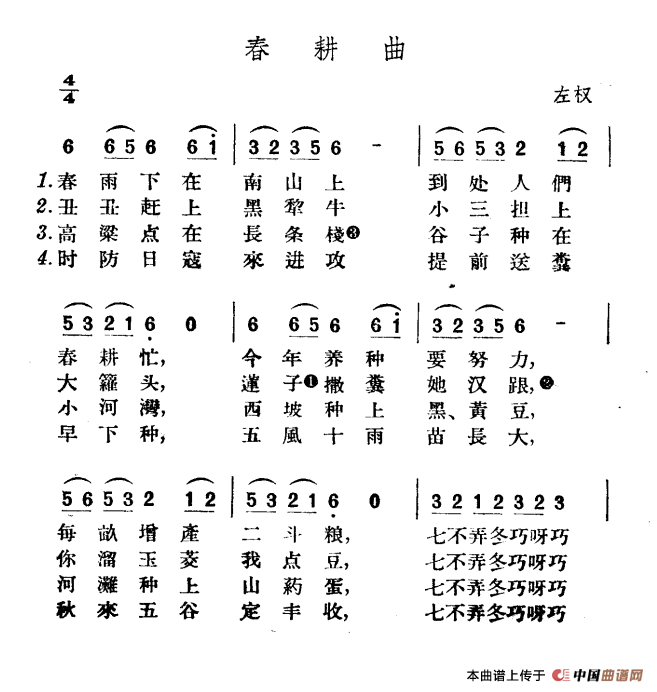 春耕曲
4/4
左权
6 6 5 6 6 i | 3 2 3 5 6 - | 5 6 5 3 2 1 2 |
1.春雨下在 南山上 到处人們
2.丑丑赶上 黑犂牛 小三担上
3.高粱点在 長条棧❸ 谷子种在
4.时防日寇 來进攻 提前送糞
5 3 2 1 6 0 | 6 6 5 6 6 i | 3 2 3 5 6 - |
春耕忙, 今年养种 要努力,
大籮头, 蓮子❶撒糞 她汉跟,❷
小河灣, 西坡种上 黑、黃豆,
早下种, 五風十雨 苗長大,
5 6 5 3 2 1 2 | 5 3 2 1 6 0 | 3 2 1 2 3 2 3
每畝增產 二斗粮, 七不弄冬巧呀巧
你溜玉茭 我点豆, 七不弄冬巧呀巧
河灘种上 山葯蛋, 七不弄冬巧呀巧
秋來五谷 定丰收, 七不弄冬巧呀巧
本曲谱上传于 中国曲谱网